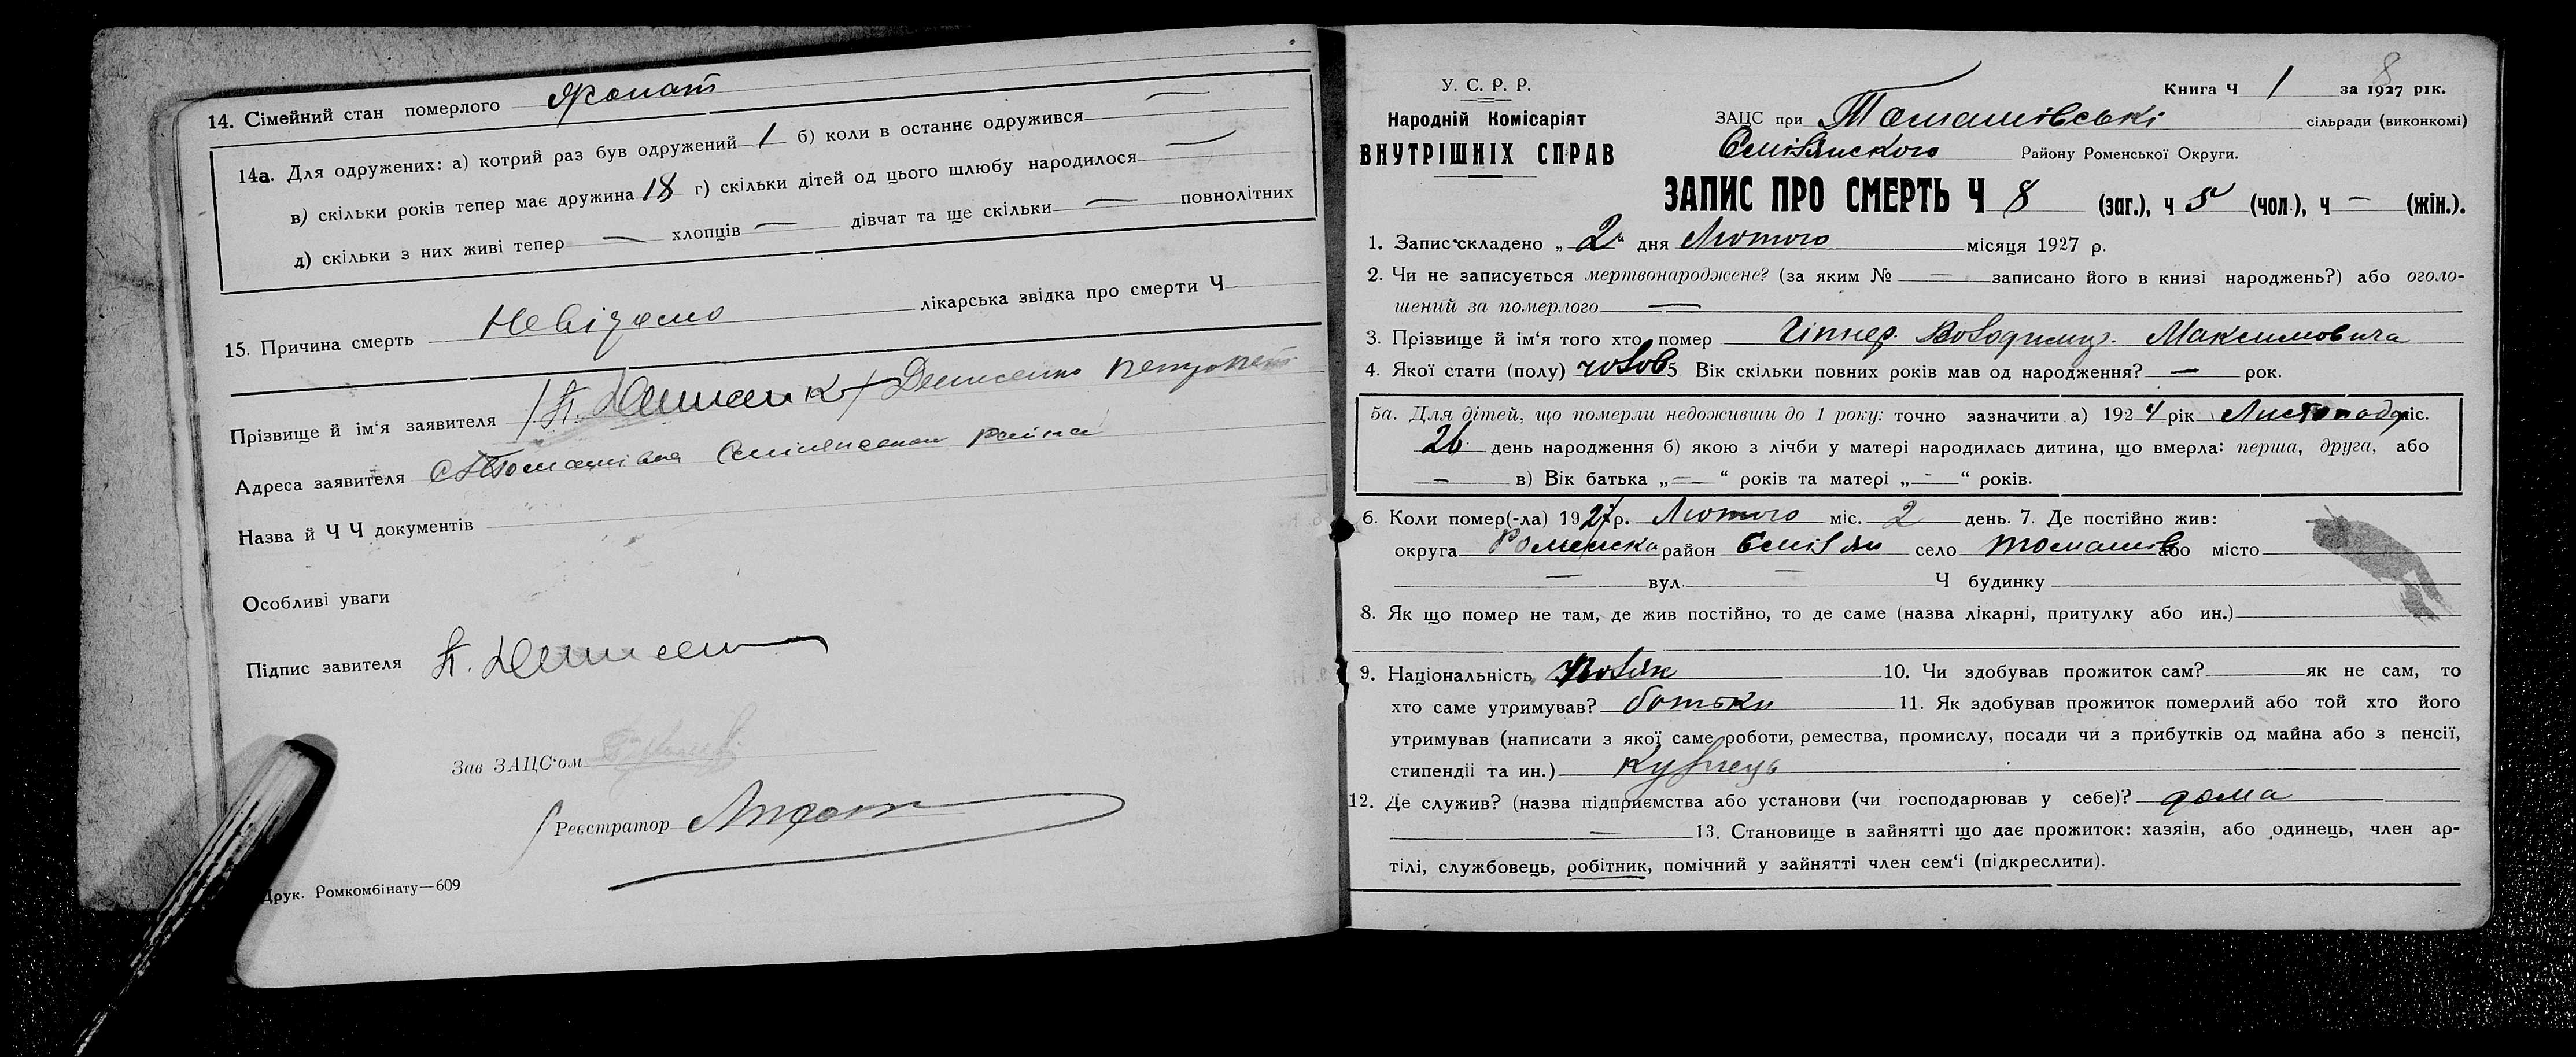 14. Сімейний стан померлого Жонат
14а. Для одружених: а) котрий раз був одружений 1 б) коли в останнє одружився —
в) скільки років тепер має дружина 18 г) скільки дітей од цього шлюбу народилося —
д) скільки з них живі тепер — хлопців — дівчат та ще скільки — повнолітних
15. Причина смерть Невідомо лікарська звідка про смерти Ч
Прізвище й ім'я заявителя П. Денисенк Денисенко
Адреса заявителя
Назва й Ч Ч документів
Особливі уваги
Підпис завителя П. Денисен
Зав ЗАЦС'ом
Реєстратор
Друк. Ромкомбінату—609
У. С. Р. Р.
Народній Комісаріят
ВНУТРІШНІХ СПРАВ
Книга Ч 1 за 1927 рік. 8
ЗАЦС при Томашівські сільради (виконкомі)
Смілянского Району Роменської Округи.
ЗАПИС ПРО СМЕРТЬ Ч 8 (заг.), ч 5 (чол.), ч — (жін.).
1. Запис складено „2" дня Лютого місяця 1927 р.
2. Чи не записується мертвонароджене? (за яким № — записано його в книзі народжень?) або оголо-
шений за померлого —
3. Прізвище й ім'я того хто помер Володимир. Максимовича
4. Якої стати (полу) чолов 5 Вік скільки повних років мав од народження? — рок.
5а. Для дітей, що померли недоживши до 1 року: точно зазначити а) 1924 рік Листопада міс.
26 день народження б) якою з лічби у матері народилась дитина, що вмерла: перша, друга, або
— в) Вік батька „—" років та матері „—" років.
6. Коли помер(-ла) 1927 р. Лютого міс. 2 день. 7. Де постійно жив:
округа Роменска район Смілян село Томашів або місто
— вул. — Ч будинку
8. Як що помер не там, де жив постійно, то де саме (назва лікарні, притулку або ин.)
9. Національність Поляк 10. Чи здобував прожиток сам? як не сам, то
хто саме утримував? батьки 11. Як здобував прожиток померлий або той хто його
утримував (написати з якої саме роботи, ремества, промислу, посади чи з прибутків од майна або з пенсії,
стипендії та ин.) Кузнець
12. Де служив? (назва підприємства або установи (чи господарював у себе)? дома
— 13. Становище в зайнятті що дає прожиток: хазяін, або одинець, член ар-
тілі, службовець, робітник, помічний у зайнятті член сем'ї (підкреслити).